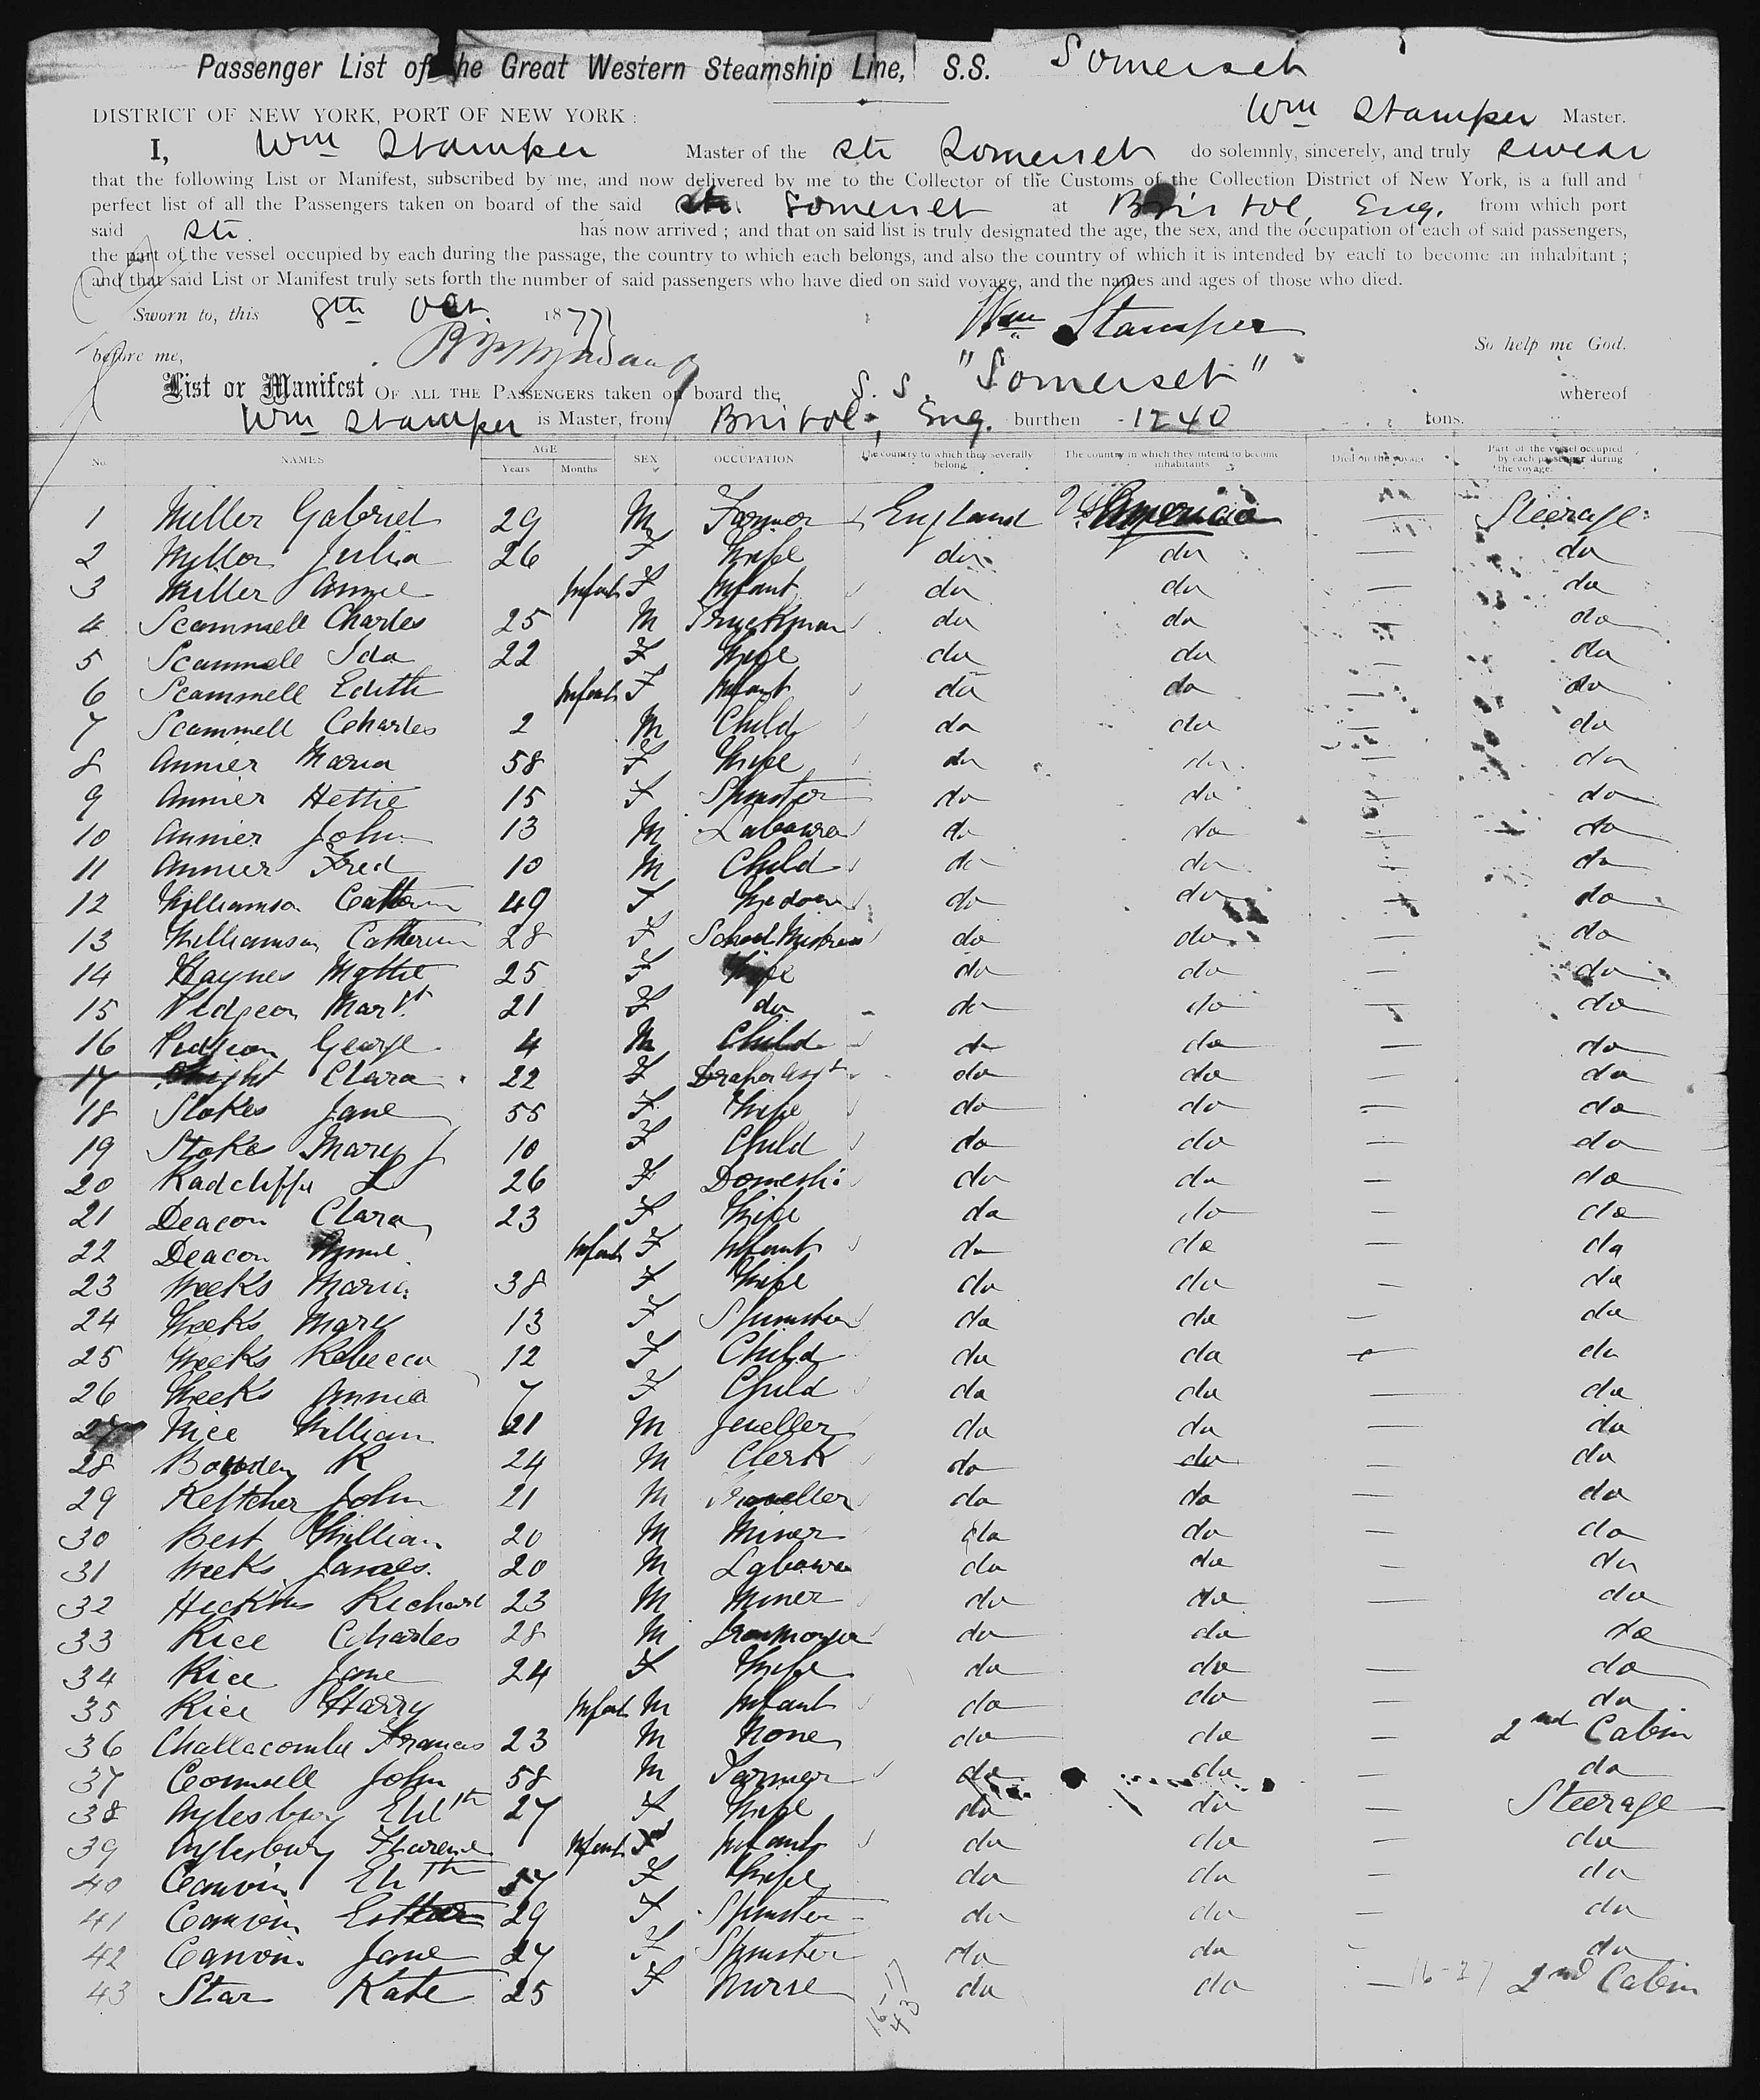 Passenger List of the Great Western Steamship Line, S.S. Somerset
DISTRICT OF NEW YORK, PORT OF NEW YORK : Wm Stamper Master.
I, Wm Stamper Master of the Str Somerset do solemnly, sincerely, and truly swear
that the following List or Manifest, subscribed by me, and now delivered by me to the Collector of the Customs of the Collection District of New York, is a full and
perfect list of all the Passengers taken on board of the said Str. Somerset at Bristol, Eng. from which port
said Str. has now arrived ; and that on said list is truly designated the age, the sex, and the occupation of each of said passengers,
the part of the vessel occupied by each during the passage, the country to which each belongs, and also the country of which it is intended by each to become an inhabitant ;
and that said List or Manifest truly sets forth the number of said passengers who have died on said voyage, and the names and ages of those who died.
Sworn to, this 8th Oct. 1877 Wm Stamper
before me, So help me God.
List or Manifest OF ALL THE PASSENGERS taken on board the, S. S. "Somerset" whereof
Wm Stamper is Master, from Bristol, Eng. burthen 1240 tons.
No. NAMES AGE Years Months SEX OCCUPATION The country to which they severally belong. The country in which they intend to become inhabitants Died on the voyage Part of the vessel occupied by each passenger during the voyage.
1 Miller Gabriel 29 M Farmer England U.S. America — Steerage
2 Miller Julia 26 F Wife do do — do
3 Miller Annie Infant F Infant do do — do
4 Scammell Charles 25 M Truckman do do — do
5 Scammell Ida 22 F Wife do do — do
6 Scammell Edith Infant F Infant do do — do
7 Scammell Charles 2 M Child do do — do
8 Annier Maria 58 F Wife do do — do
9 Annier Hettie 15 F Spinster do do — do
10 Annier John 13 M Labourer do do — do
11 Annier Fred 10 M Child do do — do
12 Williamson 49 F Widow do do — do
13 Williamson Catherine 28 F School Mistress do do — do
14 Haynes Mattie 25 F Wife do do — do
15 Pidgeon Margt. 21 F do do do — do
16 Pidgeon George 4 M Child do do — do
17 Clara 22 F Draper Asst do do — do
18 Stokes Jane 55 F Wife do do — do
19 Stokes Mary J 10 F Child do do — do
20 Radcliffe L 26 F Domestic do do — do
21 Deacon Clara 23 F Wife do do — do
22 Deacon Infant F Infant do do — do
23 Weeks Maria 38 F Wife do do — do
24 Weeks Mary 13 F Spinster do do — do
25 Weeks Rebecca 12 F Child do do — do
26 Weeks Annie 7 F Child do do — do
27 William 21 M Jeweller do do — do
28 Bowden R 24 M Clerk do do — do
29 Keltcher John 21 M Traveller do do — do
30 Best William 20 M Miner do do — do
31 Weeks James 20 M Labourer do do — do
32 Hickins Richard 23 M Miner do do — do
33 Rice Charles 28 M Ironmonger do do — do
34 Rice Jane 24 F Wife do do — do
35 Rice Harry Infant M Infant do do — do
36 Challacombe Frances 23 M None do do — 2nd Cabin
37 John 58 M Farmer do do — do
38 Aylesbury Elizth 27 F Wife do do — Steerage
39 Aylesbury Florence Infant F Infant do do — do
40 Canvin Elizth 57 F Wife do do — do
41 Canvin Esther 29 F Spinster do do — do
42 Canvin Jane 27 F Spinster do do — do
43 Star Kate 25 F Nurse do do — 16-27 2nd Cabin
16-17
43